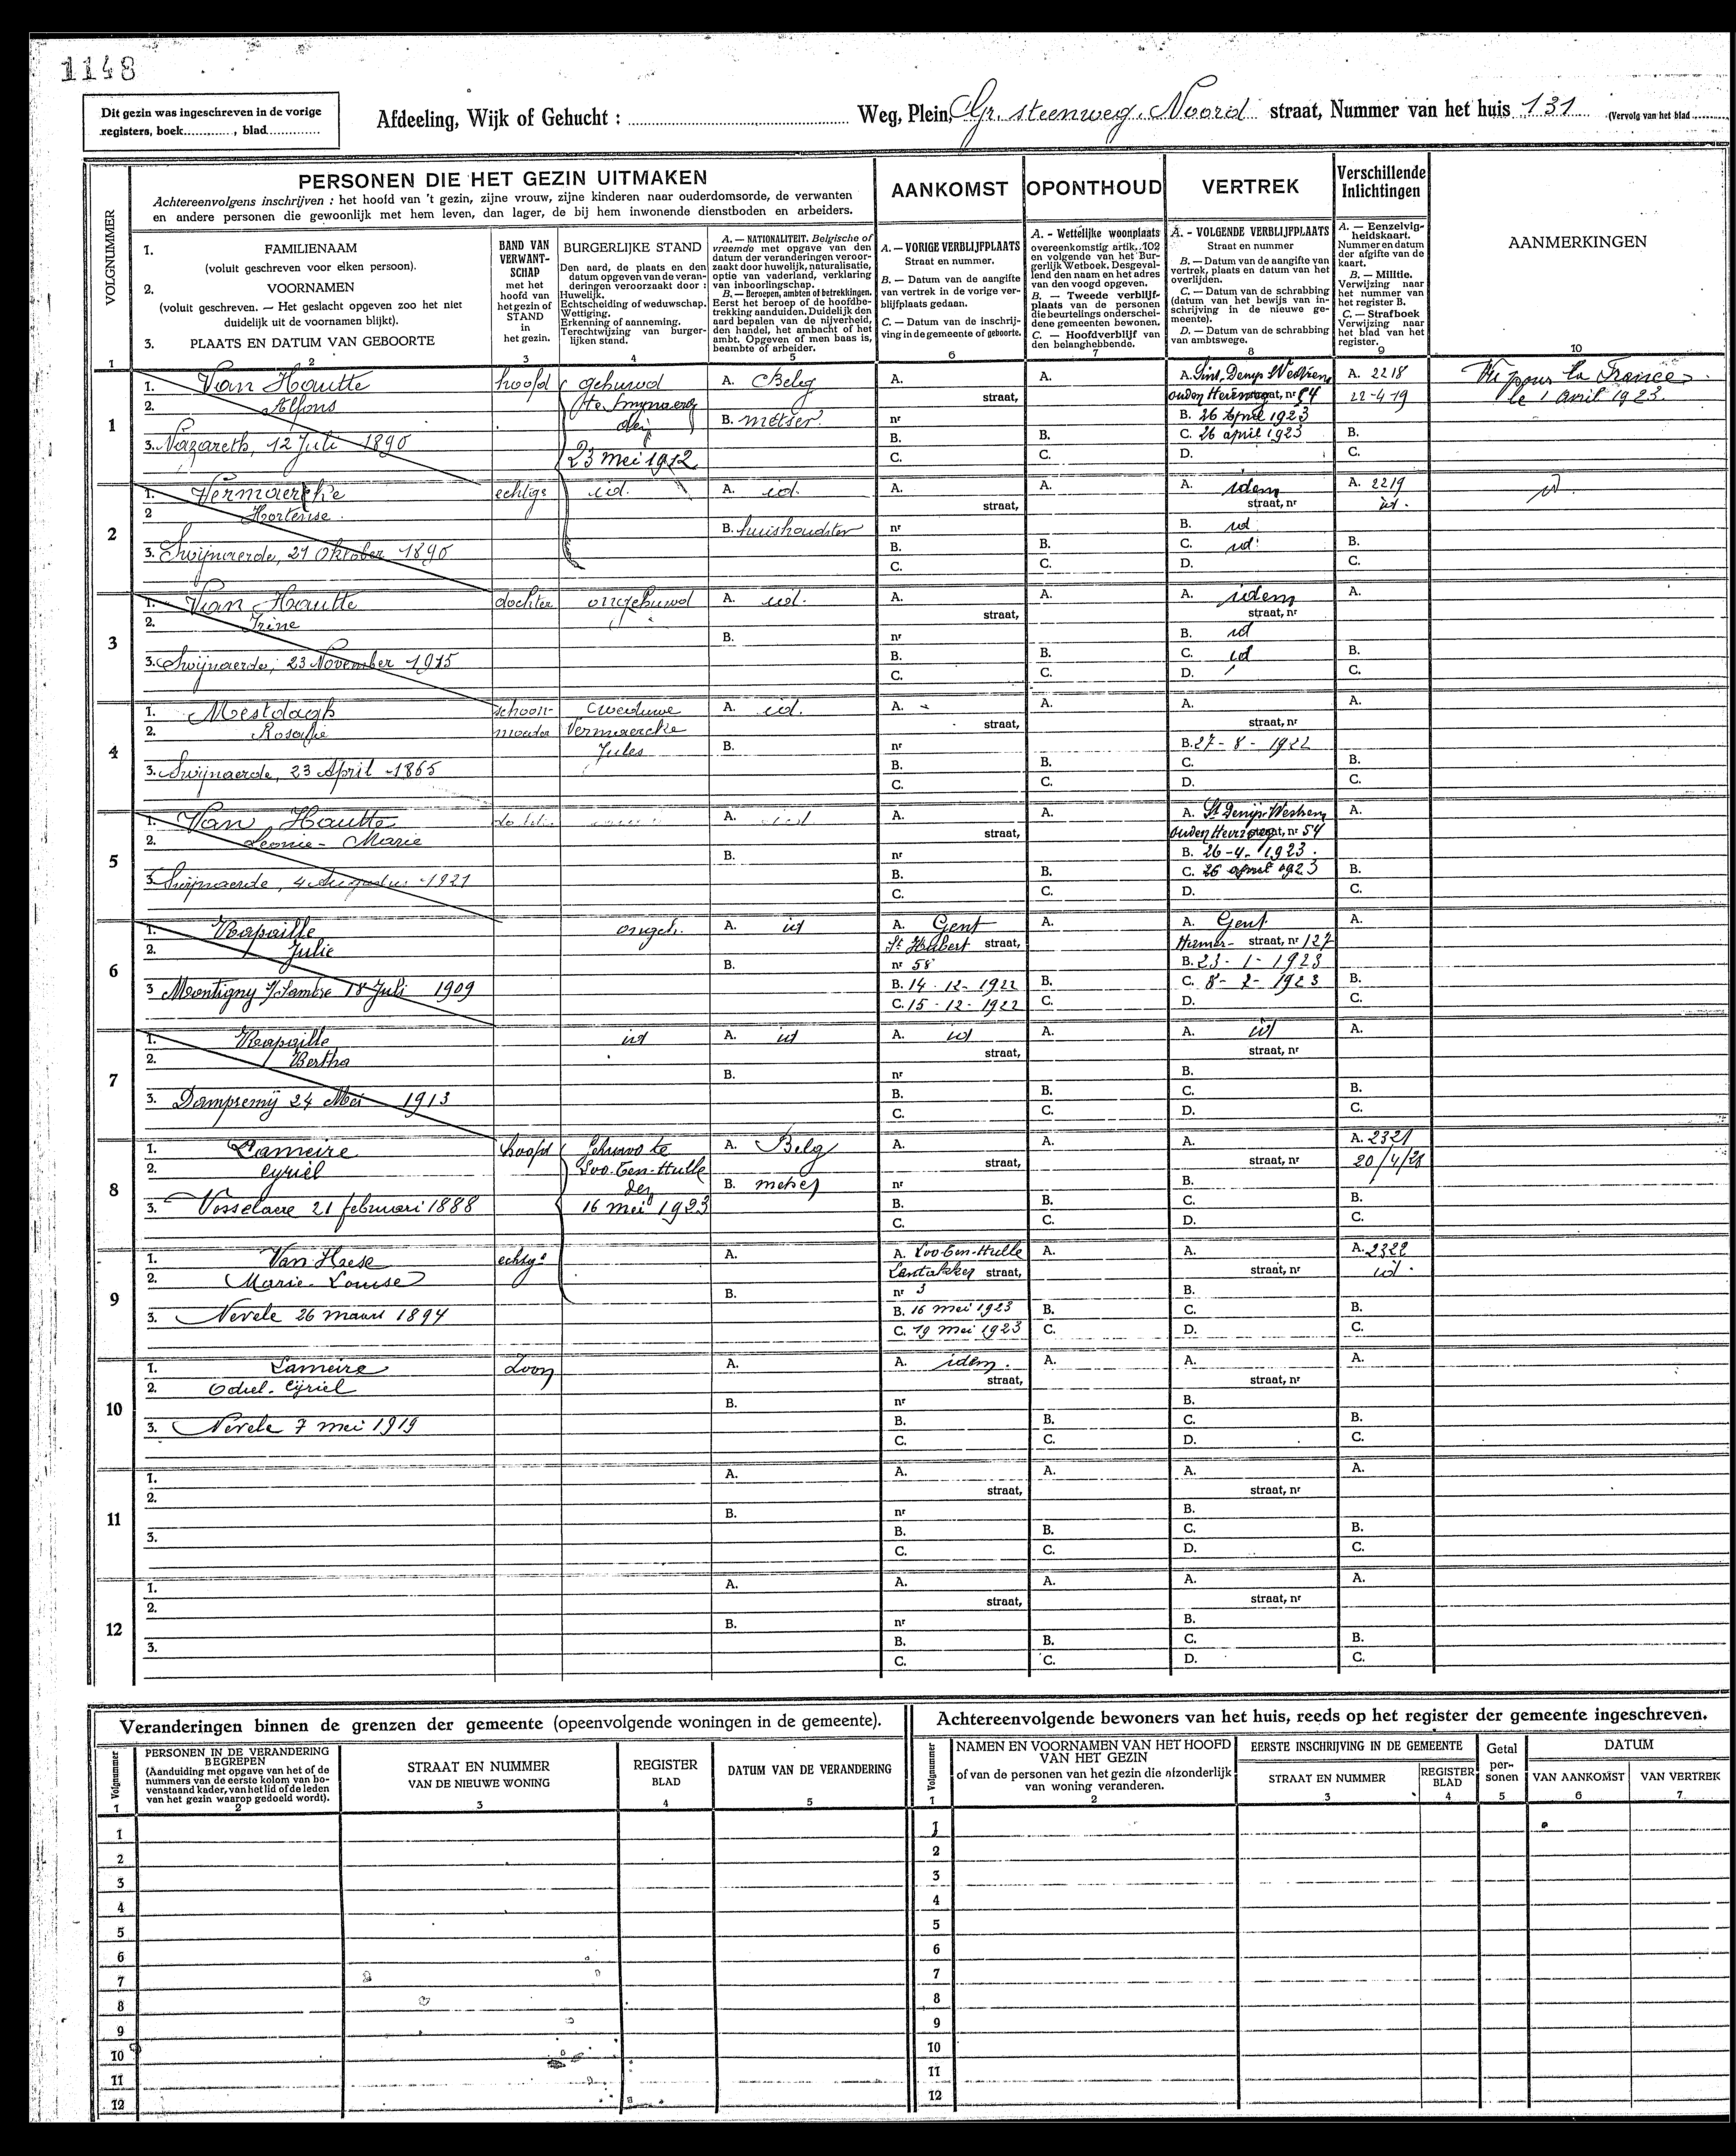 1148
Dit gezin was ingeschreven in de vorige
registers, boek............, blad..............
Afdeeling, Wijk of Gehucht : ........ Weg, Plein, Gr. steenweg. Noord straat, Nummer van het huis 131 (Vervolg van het blad
PERSONEN DIE HET GEZIN UITMAKEN
Achtereenvolgens inschrijven : het hoofd van 't gezin, zijne vrouw, zijne kinderen naar ouderdomsorde, de verwanten
en andere personen die gewoonlijk met hem leven, dan lager, de bij hem inwonende dienstboden en arbeiders.
AANKOMST
OPONTHOUD
VERTREK
Verschillende
Inlichtingen
AANMERKINGEN
VOLGNUMMER
1. FAMILIENAAM
(voluit geschreven voor elken persoon).
2. VOORNAMEN
(voluit geschreven. — Het geslacht opgeven zoo het niet
duidelijk uit de voornamen blijkt).
3. PLAATS EN DATUM VAN GEBOORTE
BAND VAN
VERWANT-
SCHAP
met het
hoofd van
het gezin of
STAND
in
het gezin.
BURGERLIJKE STAND
Den aard, de plaats en den
datum opgeven van de veran-
deringen veroorzaakt door :
Huwelijk.
Echtscheiding of weduwschap.
Wettiging.
Erkenning of aanneming.
Terechtwijzing van burger-
lijken stand.
A. — NATIONALITEIT. Belgische of
vreemde met opgave van den
datum der veranderingen veroor-
zaakt door huwelijk, naturalisatie,
optie van vaderland, verklaring
van inboorlingschap.
B. — Beroepen, ambten of betrekkingen.
Eerst het beroep of de hoofdbe-
trekking aanduiden. Duidelijk den
aard bepalen van de nijverheid,
den handel, het ambacht of het
ambt. Opgeven of men baas is,
beambte of arbeider.
A. — VORIGE VERBLIJFPLAATS
Straat en nummer.
B. — Datum van de aangifte
van vertrek in de vorige ver-
blijfplaats gedaan.
C. — Datum van de inschrij-
ving in de gemeente of geboorte.
A. - Wettelijke woonplaats
overeenkomstig artik. 102
en volgende van het Bur-
gerlijk Wetboek. Desgeval-
lend den naam en het adres
van den voogd opgeven.
B. — Tweede verblijf-
plaats van de personen
die beurtelings onderschei-
dene gemeenten bewonen.
C. — Hoofdverblijf van
den belanghebbende.
A. - VOLGENDE VERBLIJFPLAATS
Straat en nummer
B. — Datum van de aangifte van
vertrek, plaats en datum van het
overlijden.
C. — Datum van de schrabbing
(datum van het bewijs van in-
schrijving in de nieuwe ge-
meente).
D. — Datum van de schrabbing
van ambtswege.
A. — Eenzelvig-
heidskaart.
Nummer en datum
der afgifte van de
kaart.
B. — Militie.
Verwijzing naar
het nummer van
het register B.
C. — Strafboek
Verwijzing naar
het blad van het
register.
1 2 3 4 5 6 7 8 9 10
1
1. Van Hautte hoofd gehuwd A. Belg A. A. A. Sint-Denijs Westrem A. 2218 Vu pour la France
2. Alfons te straat, ouden Heirweg straat, nr 54 22-4-19 le 1 avril 1923.
den B. metser nr B. 26 April 1923
3. Nazareth, 12 Juli 1890 B. B. C. 26 april 1923 B.
23 mei 1912 C. C. D. C.
2
1. Vermaercke echtge id. A. id. A. A. A. idem A. 2219 id
2 Hortense. straat, straat, nr id.
B. huishoudster nr B. id
3. Swijnaerde, 21 Oktober 1890 B. B. C. id. B.
C. C. D. C.
3
1. Van Hautte dochter ongehuwd A. id. A. A. A. idem A.
2. Irine straat, straat, nr
B. nr B. id
3. Swijnaerde, 23 November 1915 B. B. C. id B.
C. C. D. C.
4
1. Mestdagh schoon- weduwe A. id. A. A. A. A.
2. Rosalie moeder Vermaercke straat, straat, nr
Jules B. nr B. 27-8-1922
3. Swijnaerde, 23 April 1865 B. B. C. B.
C. C. D. C.
5
1. Van Hautte A. id. A. A. A. St Denijs-Westrem A.
2. Leonie-Marie straat, ouden Heirweg straat, nr 54
B. nr B. 26-4-1923.
3. Swijnaerde, 4 Augustus 1921 B. B. C. 26 april 1923 B.
C. C. D. C.
6
1. Rapaille ongeh. A. id A. Gent A. A. Gent A.
2. Julie St Hubert straat, straat, nr 127
B. nr 58 B. 23-1-1923
3 Montigny s/Sambre 18 Juli 1909 B. 14-12-1922 B. C. 8-2-1923 B.
C. 15-12-1922 C. D. C.
7
1. Rapaille id A. id A. id A. A. id A.
2. Bertha straat, straat, nr
B. nr B.
3. Dampremij 24 Mei 1913 B. B. C. B.
C. C. D. C.
8
1. Lameire hoofd Gehuwd te A. Belg A. A. A. A. 2321
2. Cyriel Loo-Ten-Hulle straat, straat, nr 20/4/28
den B. metser nr B.
3. Vosselaere 21 februari 1888 16 mei 1923 B. B. C. B.
C. C. D. C.
9
1. Van Haese echtge A. A. Loo-Ten-Hulle A. A. A. 2322
2. Marie-Louise straat, straat, nr id.
B. nr 3 B.
3. Nevele 26 maart 1894 B. 16 mei 1923 B. C. B.
C. 19 mei 1923 C. D. C.
10
1. Lameire Zoon A. A. idem. A. A. A.
2. Odiel-Cyriel straat, straat, nr
B. nr B.
3. Nevele 7 mei 1919 B. B. C. B.
C. C. D. C.
11
1. A. A. A. A. A.
2. straat, straat, nr
B. nr B.
3. B. B. C. B.
C. C. D. C.
12
1. A. A. A. A. A.
2. straat, straat, nr
B. nr B.
3. B. B. C. B.
C. C. D. C.
Veranderingen binnen de grenzen der gemeente (opeenvolgende woningen in de gemeente).
Volgnummer
PERSONEN IN DE VERANDERING
BEGREPEN
(Aanduiding met opgave van het of de
nummers van de eerste kolom van bo-
venstaand kader, van het lid of de leden
van het gezin waarop gedoeld wordt).
STRAAT EN NUMMER
VAN DE NIEUWE WONING
REGISTER
BLAD
DATUM VAN DE VERANDERING
1 2 3 4 5
1
2
3
4
5
6
7
8
9
10
11
12
Achtereenvolgende bewoners van het huis, reeds op het register der gemeente ingeschreven.
Volgnummer
NAMEN EN VOORNAMEN VAN HET HOOFD
VAN HET GEZIN
of van de personen van het gezin die afzonderlijk
van woning veranderen.
EERSTE INSCHRIJVING IN DE GEMEENTE
STRAAT EN NUMMER
REGISTER
BLAD
Getal
per-
sonen
DATUM
VAN AANKOMST
VAN VERTREK
1 2 3 4 5 6 7
1
2
3
4
5
6
7
8
9
10
11
12